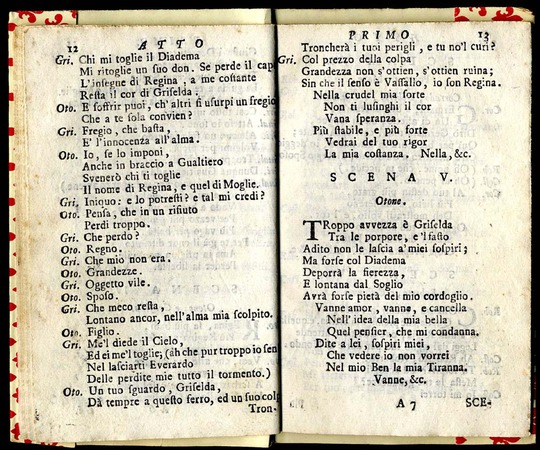 12 ATTO
Gri. Chi mi toglie il Diadema
Mi ritoglie un suo don. Se perde il cap
L'insegne di Regina, a me costante
Resta il cor di Griselda.
Oto. E soffrir puoi, ch'altri si usurpi un fregio
Che a te sola convien?
Gri. Fregio, che basta,
E' l'innocenza all'alma.
Oto. Io, se lo imponi,
Anche in braccio a Gualtiero
Svenerò chi ti toglie
Il nome di Regina, e quel di Moglie.
Gri. Iniquo: e lo potresti? e tal mi credi?
Oto. Pensa, che in un rifiuto
Perdi troppo.
Gri. Che perdo?
Oto. Regno.
Gri. Che mio non era.
Oto. Grandezze.
Gri. Oggetto vile.
Oto. Sposo.
Gri. Che meco resta,
Lontano ancor, nell'alma mia scolpito.
Oto. Figlio.
Gri. Me'l diede il Cielo,
Ed ei me'l toglie; (ah che pur troppo io sen
Nel lasciarti Everardo
Delle perdite mie tutto il tormento.)
Oto. Un tuo sguardo, Griselda,
Dà tempre a questo ferro, ed un suo colp
Tron-
PRIMO. 13
Troncherà i tuoi perigli, e tu no'l curi?
Gri. Col prezzo della colpa
Grandezza non s'ottien, s'ottien ruina;
Sin che il senso è Vassallo, io son Regina.
Nella crudel mia sorte
Non ti lusinghi il cor
Vana speranza.
Più stabile, e più forte
Vedrai del tuo rigor
La mia costanza. Nella, &c.
SCENA V.
Otone.
TRoppo avvezza è Griselda
Tra le porpore, e'l fasto
Adito non le lascia a' miei sospiri;
Ma forse col Diadema
Deporrà la fierezza,
E lontana dal Soglio
Avrà forse pietà del mio cordoglio.
Vanne amor, vanne, e cancella
Nell' idea della mia bella
Quel pensier, che mi condanna.
Dite a lei, sospiri miei,
Che vedere io non vorrei
Nel mio Ben la mia Tiranna.
Vanne, &c.
A 7 SCE-